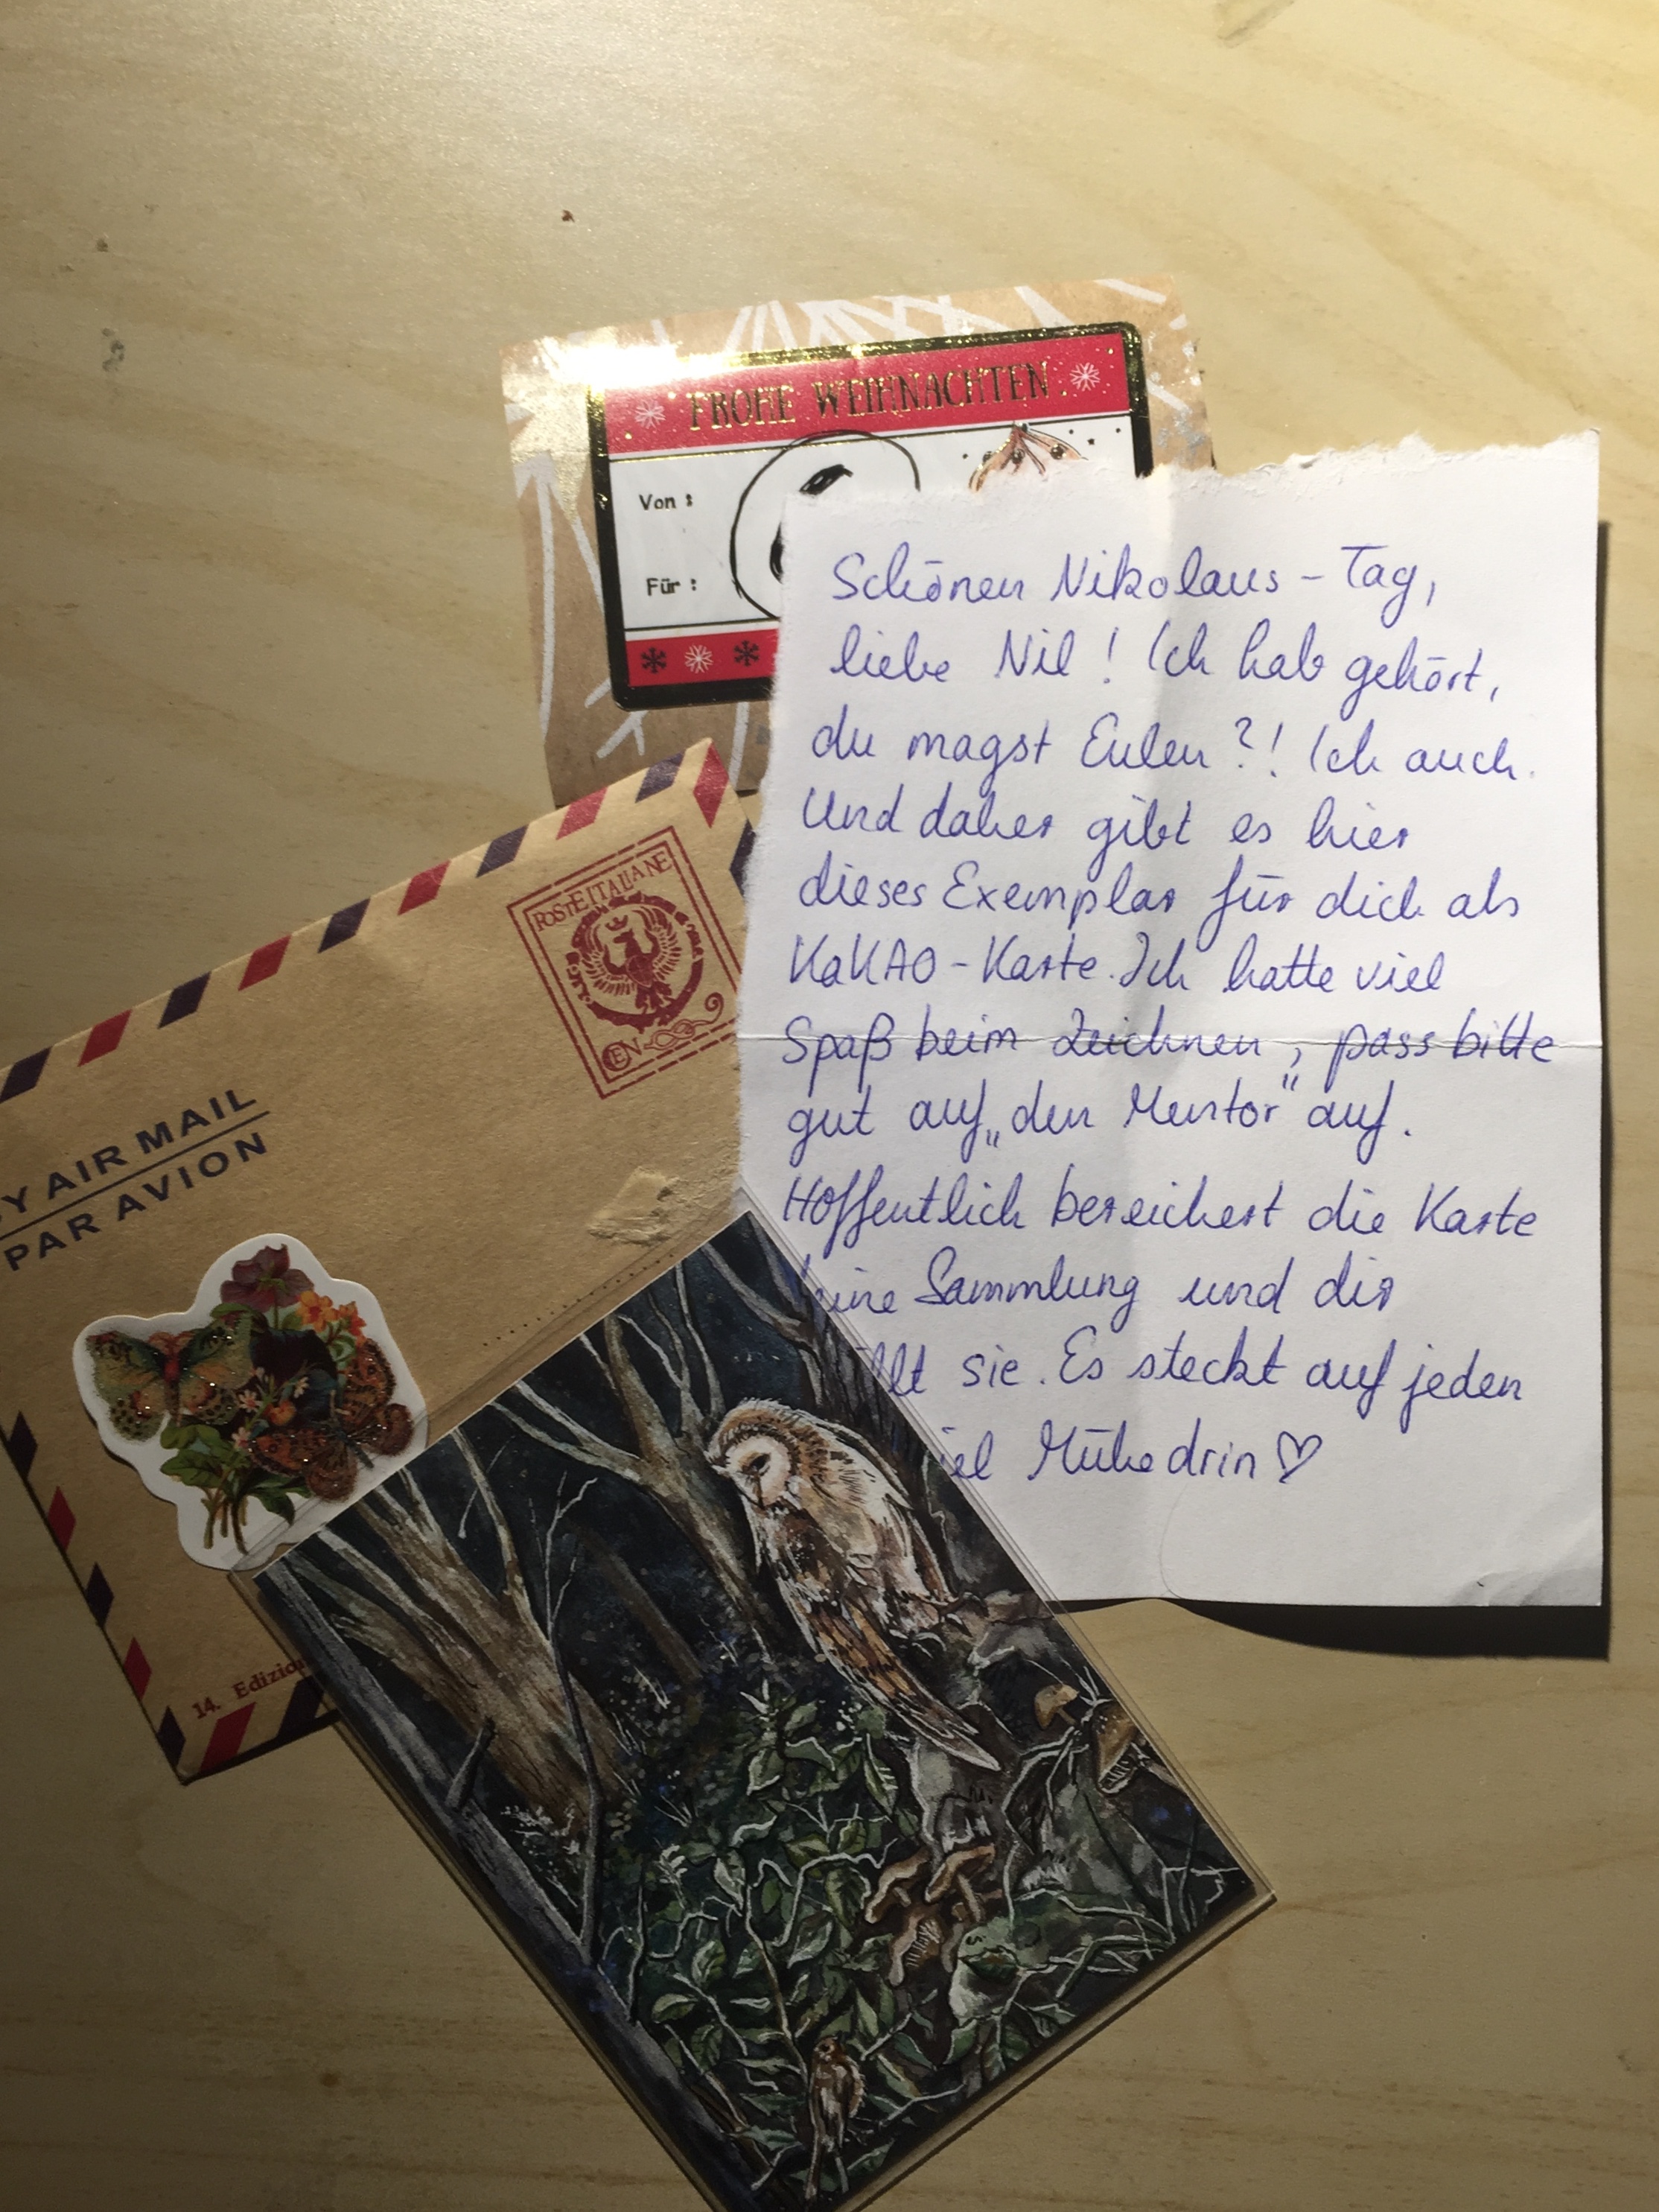 FROHE WEIHNACHTEN
Von :
Für :
Schönen Nikolaus - Tag,
liebe Nil ! Ich hab gehört,
du magst Eulen ?! Ich auch.
Und daher gibt es hier
dieses Exemplar für dich als
KaKAO - Karte. Ich hatte viel
Spaß beim Zeichnen, pass bitte
gut auf „den Mentor" auf.
Hoffentlich bereichert die Karte
Sammlung und dir
sie. Es steckt auf jeden
Mühe drin ♡
POSTE ITALIANE
CEN
BY AIR MAIL
PAR AVION
14.